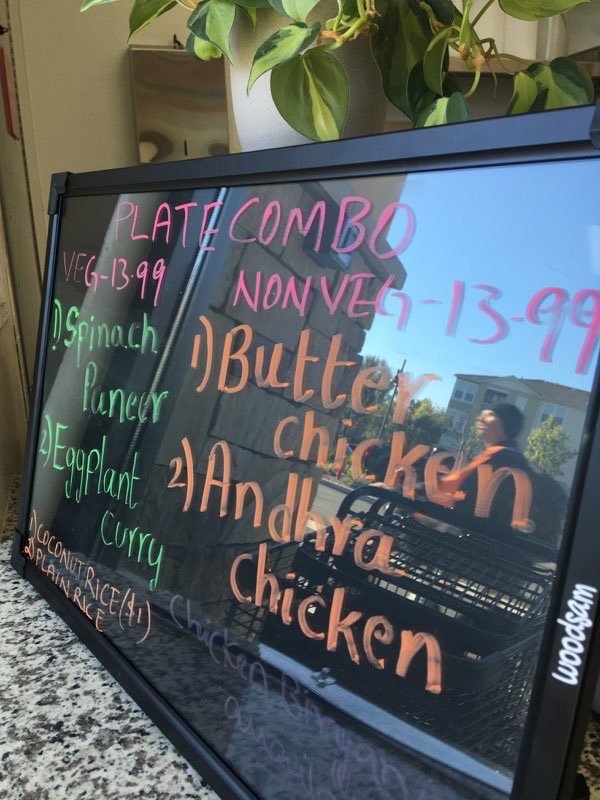 PLATE COMBO
VEG-13.99
1) Spinach
Paneer
2) Eggplant
Curry
1) COCONUT RICE($1)
2) PLAIN RICE
NONVEG-13-99
1) Butter
chicken
2) Andhra
chicken
Chicken Biryani
woodsam